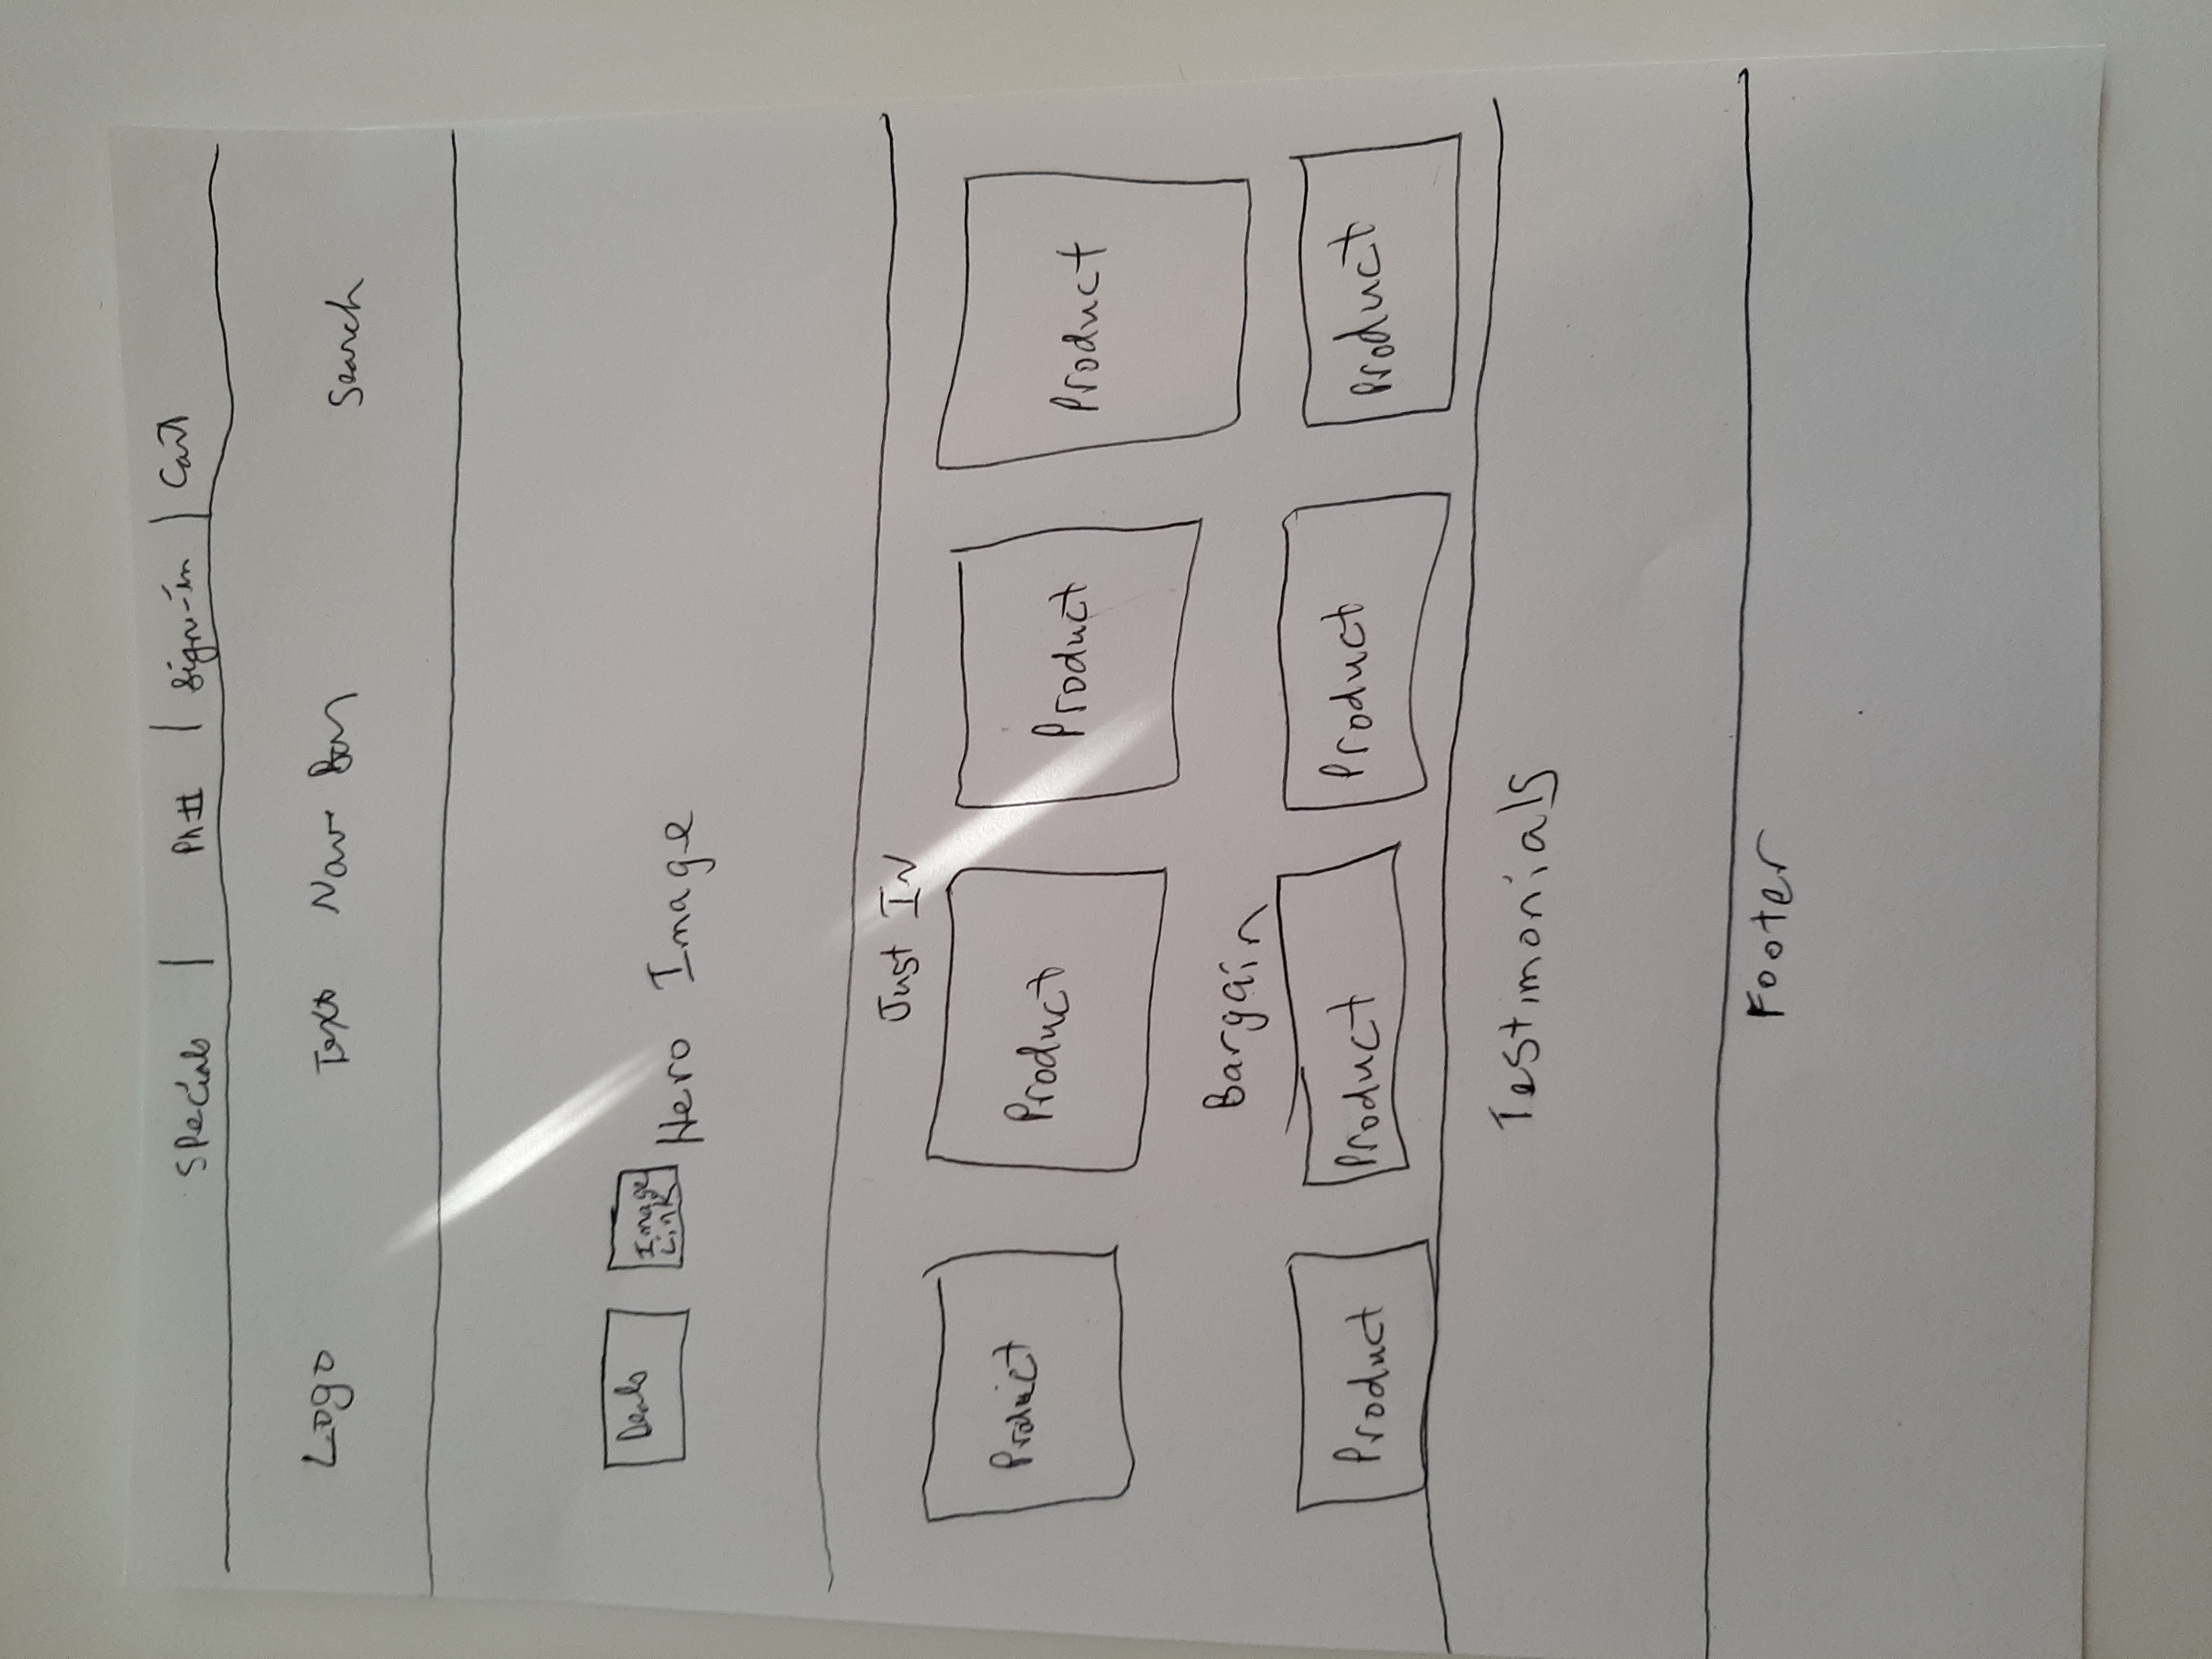 Specials | Ph# | Sign-in | Cart
Logo Text Nav Bar Search
Deals Image Link Hero Image
Just IN
Product Product Product Product
Bargain
Product Product Product Product
Testimonials
Footer